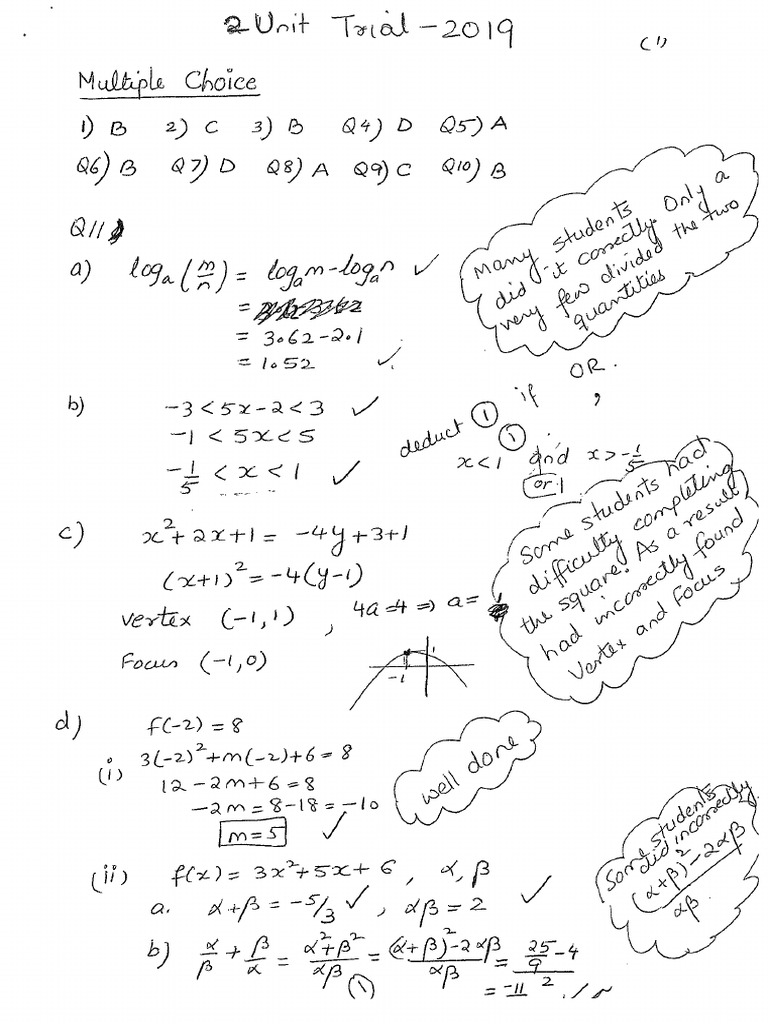 2 Unit Trial - 2019
(1)
Multiple Choice
1) B 2) C 3) B Q4) D Q5) A
Q6) B Q7) D Q8) A Q9) C Q10) B
Q11
a) logₐ(m/n) = logₐm - logₐn ✓
= 3.62 - 2.1
= 1.52 ✓
Many students
did it correctly. Only a
very few divided the two
quantities
b) -3 < 5x - 2 < 3 ✓
-1 < 5x < 5
-1/5 < x < 1 ✓
OR.
deduct ① if ,
①
x < 1 and x > -1/5
or
c) x² + 2x + 1 = -4y + 3 + 1
(x+1)² = -4(y-1)
Vertex (-1, 1) , 4a = 4 ⇒ a = 1
Focus (-1, 0)
1
-1
Some students had
difficulty completing
the square. As a result
had incorrectly found
Vertex and Focus
d) f(-2) = 8
(i) 3(-2)² + m(-2) + 6 = 8
12 - 2m + 6 = 8
-2m = 8 - 18 = -10
m = 5 ✓
well done
(ii) f(x) = 3x² + 5x + 6 , α, β
a. α + β = -5/3 ✓ , αβ = 2 ✓
b) α/β + β/α = (α² + β²)/αβ = ((α + β)² - 2αβ)/αβ = (25/9 - 4)/2
①
= -11
Some students
did incorrectly
(α+β)² - 2αβ
αβ